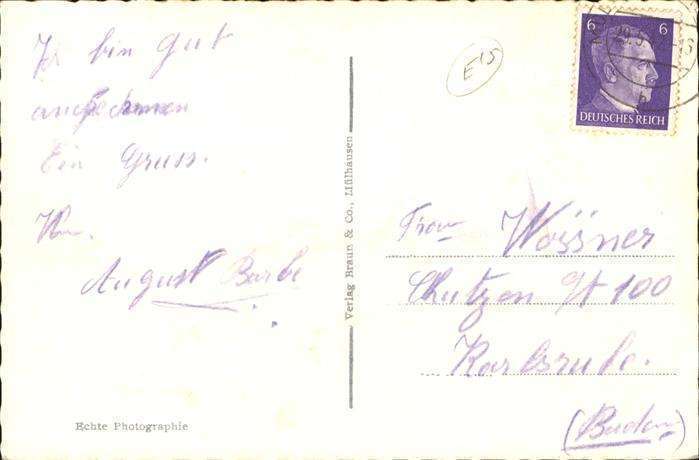 Ich bin gut
angekommen
Ein Gruss.
August Barbe
Echte Photographie
Verlag Braun & Co., Lißlhausen
E 15
6 6
DEUTSCHES REICH
Frau Wössner
100
Karlsruhe.
(Baden)